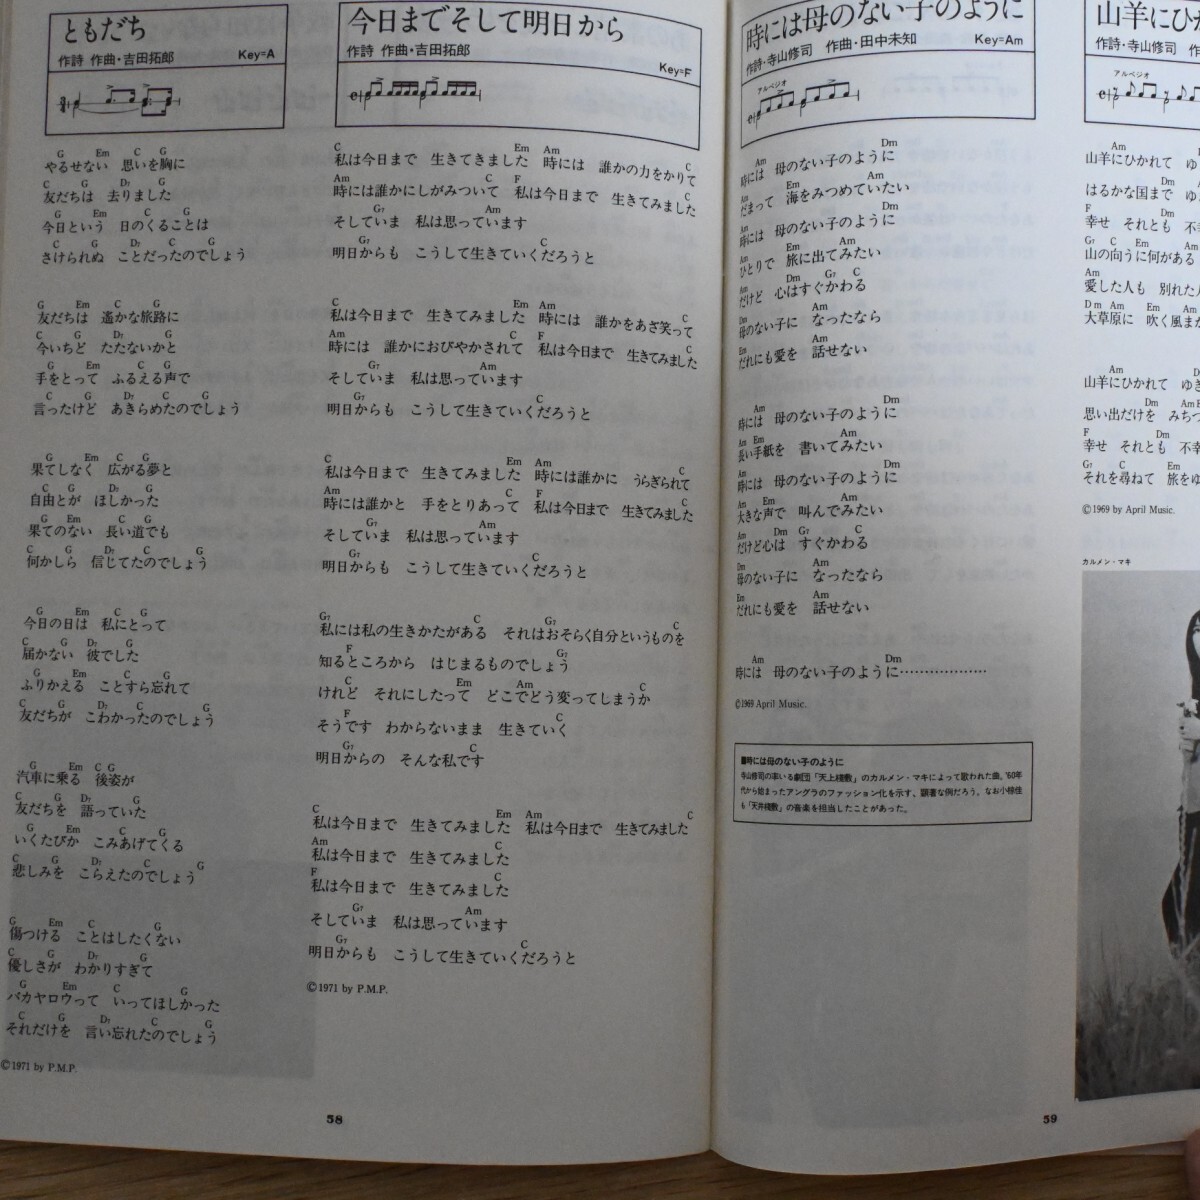 ともだち
作詩 作曲・吉田拓郎 Key=A
G Em C G
やるせない 思いを胸に
C G D7 G
友だちは 去りました
G Em C G
今日という 日のくることは
C G D7 C G
さけられぬ ことだったのでしょう
G Em C G
友だちは 遙かな旅路に
C G D7 G
今いちど たたないかと
G Em C G
手をとって ふるえる声で
C G D7 C G
言ったけど あきらめたのでしょう
G Em C G
果てしなく 広がる夢と
C G D7 G
自由とが ほしかった
G Em C G
果てのない 長い道でも
C G D7 C G
何かしら 信じてたのでしょう
G Em C G
今日の日は 私にとって
C G D7 G
届かない 彼でした
G Em C G
ふりかえる ことすら忘れて
C G D7 C G
友だちが こわかったのでしょう
G Em C G
汽車に乗る 後姿が
C G D7 G
友だちを 語っていた
G Em C G
いくたびか こみあげてくる
C G D7 C G
悲しみを こらえたのでしょう
G Em C G
傷つける ことはしたくない
C G D7 G
優しさが わかりすぎて
G Em C G
バカヤロウって いってほしかった
C G D7 C G
それだけを 言い忘れたのでしょう
©1971 by P.M.P.
今日までそして明日から
作詩 作曲・吉田拓郎 Key=F
C Em Am C
私は今日まで 生きてきました 時には 誰かの力をかりて
Am C F C
時には誰かにしがみついて 私は今日まで 生きてみました
G7 Am
そしていま 私は思っています
G7 C
明日からも こうして生きていくだろうと
C Em Am C
私は今日まで 生きてみました 時には 誰かをあざ笑って
Am C F C
時には 誰かにおびやかされて 私は今日まで 生きてみました
G7 Am
そしていま 私は思っています
G7 C
明日からも こうして生きていくだろうと
C Em Am C
私は今日まで 生きてみました 時には誰かに うらぎられて
Am C F C
時には誰かと 手をとりあって 私は今日まで 生きてみました
G7 Am
そしていま 私は思っています
G7 C
明日からも こうして生きていくだろうと
G7 C G7 C
私には私の生きかたがある それはおそらく自分というものを
F G7
知るところから はじまるものでしょう
C Em Am C
けれど それにしたって どこでどう変ってしまうか
F C
そうです わからないまま 生きていく
G7 C
明日からの そんな私です
C Em Am C
私は今日まで 生きてみました 私は今日まで 生きてみました
Am C
私は今日まで 生きてみました
F C
私は今日まで 生きてみました
G7 Am
そしていま 私は思っています
G7 C
明日からも こうして生きていくだろうと
©1971 by P.M.P.
58
時には母のない子のように
作詩・寺山修司 作曲・田中未知 Key=Am
アルペジオ
Am Dm
時には 母のない子のように
Am Em Am
だまって 海をみつめていたい
Am Dm
時には 母のない子のように
Am Em Am
ひとりで 旅に出てみたい
Am Dm G7 C
だけど 心はすぐかわる
Dm Am
母のない子に なったなら
Em Am
だれにも愛を 話せない
Am Dm
時には 母のない子のように
Am Em Am
長い手紙を 書いてみたい
Am Dm
時には 母のない子のように
Am Em Am
大きな声で 叫んでみたい
Am Dm G7 C
だけど心は すぐかわる
Dm Am
母のない子に なったなら
Em Am
だれにも愛を 話せない
Am Dm
時には 母のない子のように………………
©1969 April Music.
■時には母のない子のように
寺山修司の率いる劇団「天上桟敷」のカルメン・マキによって歌われた曲。'60年
代から始まったアングラのファッション化を示す、顕著な例だろう。なお小椋佳
も「天井桟敷」の音楽を担当したことがあった。
山羊にひか
作詩・寺山修司 作
アルペジオ
Am
山羊にひかれて ゆ
Dm
はるかな国まで ゆ
F Dm
幸せ それとも 不幸
G7 C Em Am
山の向うに何がある
Am
愛した人も 別れた人
Dm Am Em Am
大草原に 吹く風まか
Am Dm
山羊にひかれて ゆき
Dm Am
思い出だけを みちつ
F Dm
幸せ それとも 不幸
G7 C Em
それを尋ねて 旅をゆ
©1969 by April Music.
カルメン・マキ
59